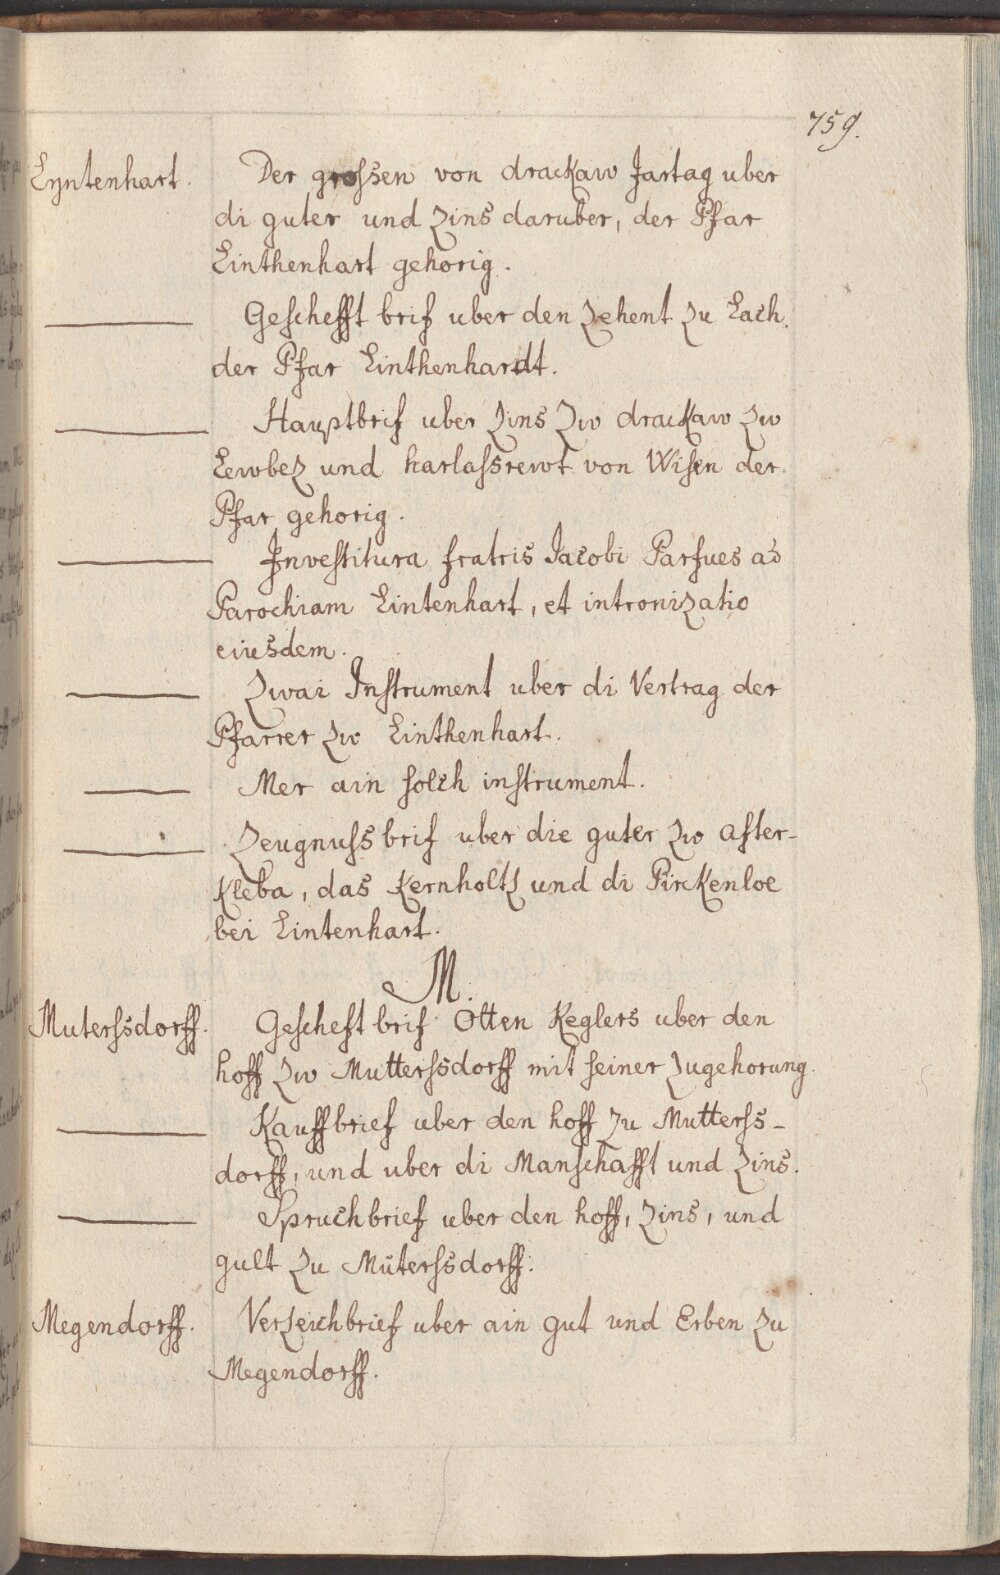 759.
Lyntenhart. Der grossen von drackaw Jartag uber
di guter und Zins daruber, der Pfar
Linthenhart gehorig.
Geschefft brif uber den Zehent zu Lach.
der Pfar Linthenhardt.
Hauptbrif uber Zins Zw drackaw zw
Lewbez und harlassrewt von Wisen der
Pfar gehorig.
Investitura fratris Jacobi Parfues ad
Parochiam Lintenhart, et intronizatio
eiusdem.
Zwai Instrument uber di Vertrag der
Pfarrer zw Linthenhart.
Mer ain solch instrument.
Zeugnuss brif uber die guter zw after-
Kleba, das Kernholtz und di Pirckenloe
bei Lintenhart.
M.
Muterssdorff. Gescheft brif Otten Keglers uber den
hoff zw Mutterssdorff mit seiner Zugehorung.
Kauffbrief uber den hoff zu Mutterss-
dorff, und uber di Manschafft und Zins.
Spruchbrief uber den hoff, Zins, und
gult zu Mŭterssdorff.
Megendorff. Verzeichbrief uber ain gut und Erben zu
Megendorff.